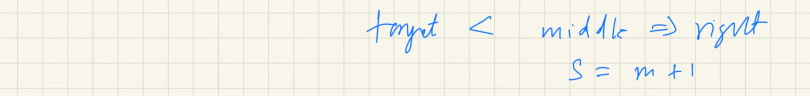 target < middle => right
S = m + 1